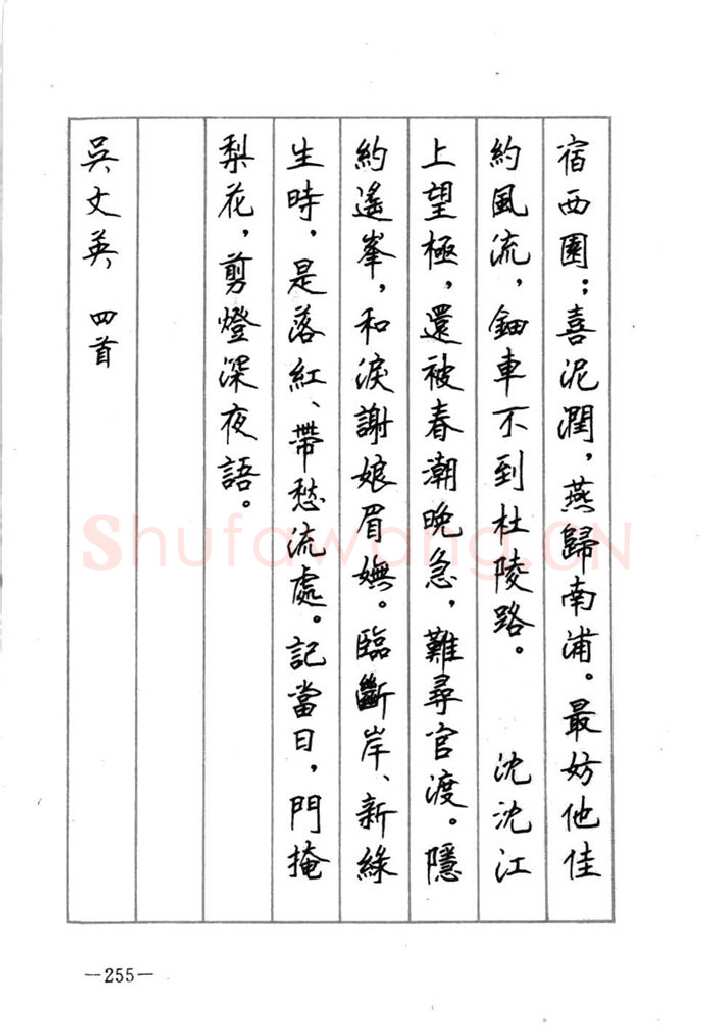 宿西園；喜泥潤，燕歸南浦。最妨他佳
約風流，鈿車不到杜陵路。　沈沈江
上望極，還被春潮晚急，難尋官渡。隱
約遙峯，和淚謝娘眉嫵。臨斷岸、新綠
生時，是落紅、帶愁流處。記當日，門掩
梨花，剪燈深夜語。
吳文英　四首
—255—
Shufawang.CN